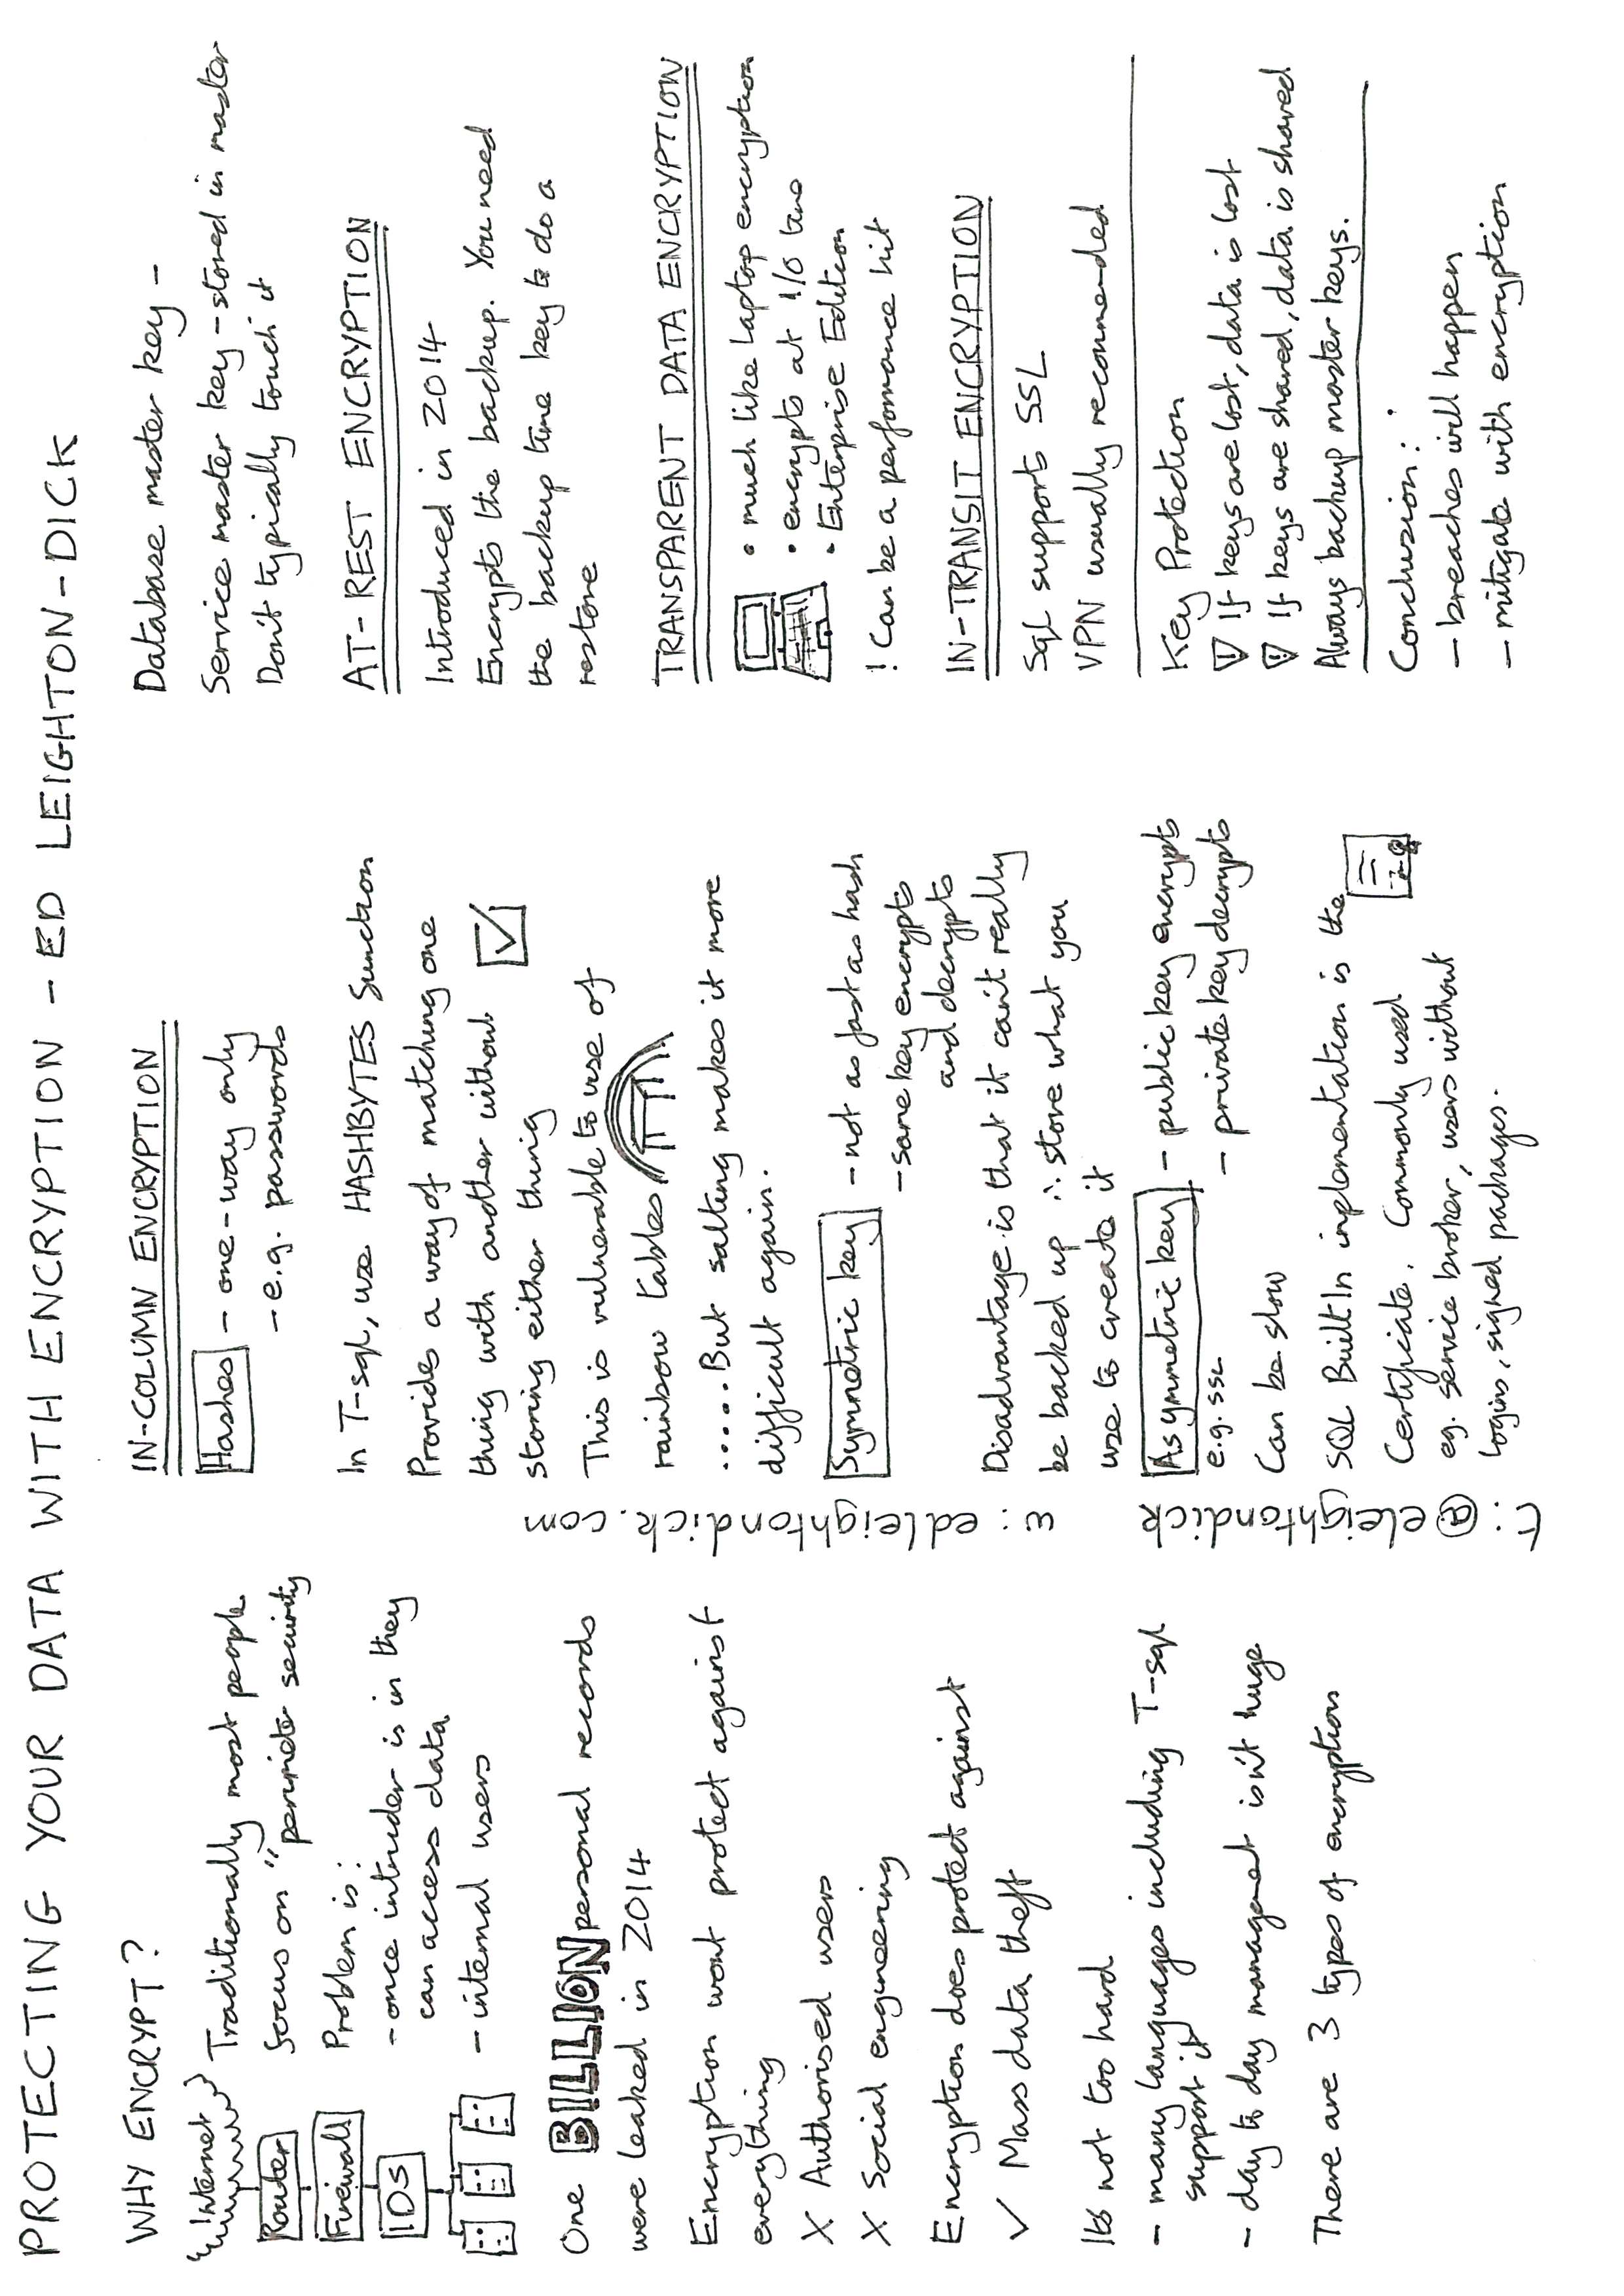 PROTECTING YOUR DATA WITH ENCRYPTION - ED LEIGHTON-DICK
WHY ENCRYPT?
Internet
Router
Firewall
IDS
Traditionally most people
focus on "perimeter security
Problem is:
- once intruder is in they
can access data
- internal users
One BILLION personal records
were leaked in 2014
Encryption wont protect against
everything
X Authorised users
X Social engineering
Encryption does protect against
✓ Mass data theft
Its not too hard
- many languages including T-sql
support it
- day to day managemet isn't huge
There are 3 types of encryption
w: edleightondick.com
t: @eleightondick
IN-COLUMN ENCRYPTION
Hashes - one-way only
- e.g. passwords
In T-sql, use HASHBYTES function
Provides a way of matching one
thing with another without
storing either thing
This is vulnerable to use of
rainbow tables
.....But salting makes it more
difficult again.
Symmetric key - not as fast as hash
- same key encrypts
and decrypts
Disadvantage is that it can't really
be backed up ∴ store what you
use to create it
Asymmetric key - public key encrypts
e.g. SSL - private key decrypts
Can be slow
SQL Built In implementation is the
Certificate. Commonly used
eg. service broker, users without
logins, signed packages.
Database master key -
Service master key - stored in master
Don't typically touch it
AT-REST ENCRYPTION
Introduced in 2014
Encrypts the backup. You need
the backup time key to do a
restore
TRANSPARENT DATA ENCRYPTION
• much like laptop encryption
• encrypts at I/O time
• Enterprise Edition
! Can be a performance hit
IN-TRANSIT ENCRYPTION
Sql supports SSL
VPN usually recommended
Key Protection
! If keys are lost, data is lost
! If keys are shared, data is shared
Always backup master keys.
Conclusion:
- breaches will happen
- mitigate with encryption